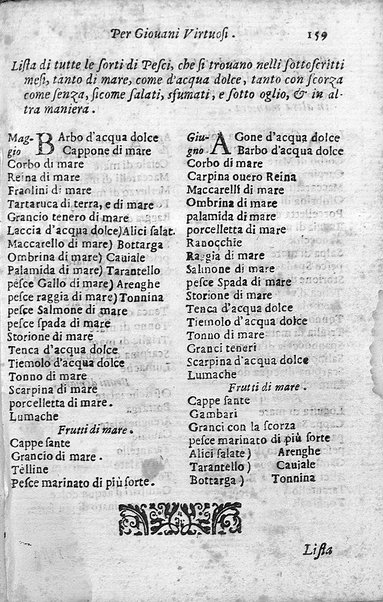 Per Giouani Virtuosi. 159
Lista di tutte le sorti di Pesci, che si trouano nelli sottoscritti
mesi, tanto di mare, come d'acqua dolce, tanto con scorza
come senza, sicome salati, sfumati, e sotto oglio, & in al-
tra maniera.
Mag- BArbo d'acqua dolce
gio Cappone di mare
Corbo di mare
Reina di mare
Fraolini di mare
Tartaruca di terra, e di mare
Grancio tenero di mare
Laccia d'acqua dolce)Alici salat.
Maccarello di mare) Bottarga
Ombrina di mare) Cauiale
Palamida di mare) Tarantello
pesce Gallo di mare) Arenghe
pesce raggia di mare) Tonnina
pesce Salmone di mare
pesce spada di mare
Storione di mare
Tenca d'acqua dolce
Tiemolo d'acqua dolce
Tonno di mare
Scarpina di mare
porcelletta di mare.
Lumache
Frutti di mare.
Cappe sante
Grancio di mare.
Telline
Pesce marinato di più sorte.
Giu- AGone d'acqua dolce
gno. Barbo d'acqua dolce
Corbo di mare
Carpina ouero Reina
Maccarelli di mare
Ombrina di mare
palamida di mare
porcelletta di mare
Ranocchie
Raggia di mare
Salmone di mare
pesce Spada di mare
Storione di mare
Tenca d'acqua dolce
Tiemolo d'acqua dolce
Tonno di mare
Granci teneri
Scarpina d'acqua dolce
Lumache
Frutti di mare.
Cappe sante
Gambari
Granci con la scorza
pesce marinato di più sorte
Alici salate) Arenghe
Tarantello) Cauiale
Bottarga) Tonnina
Lista